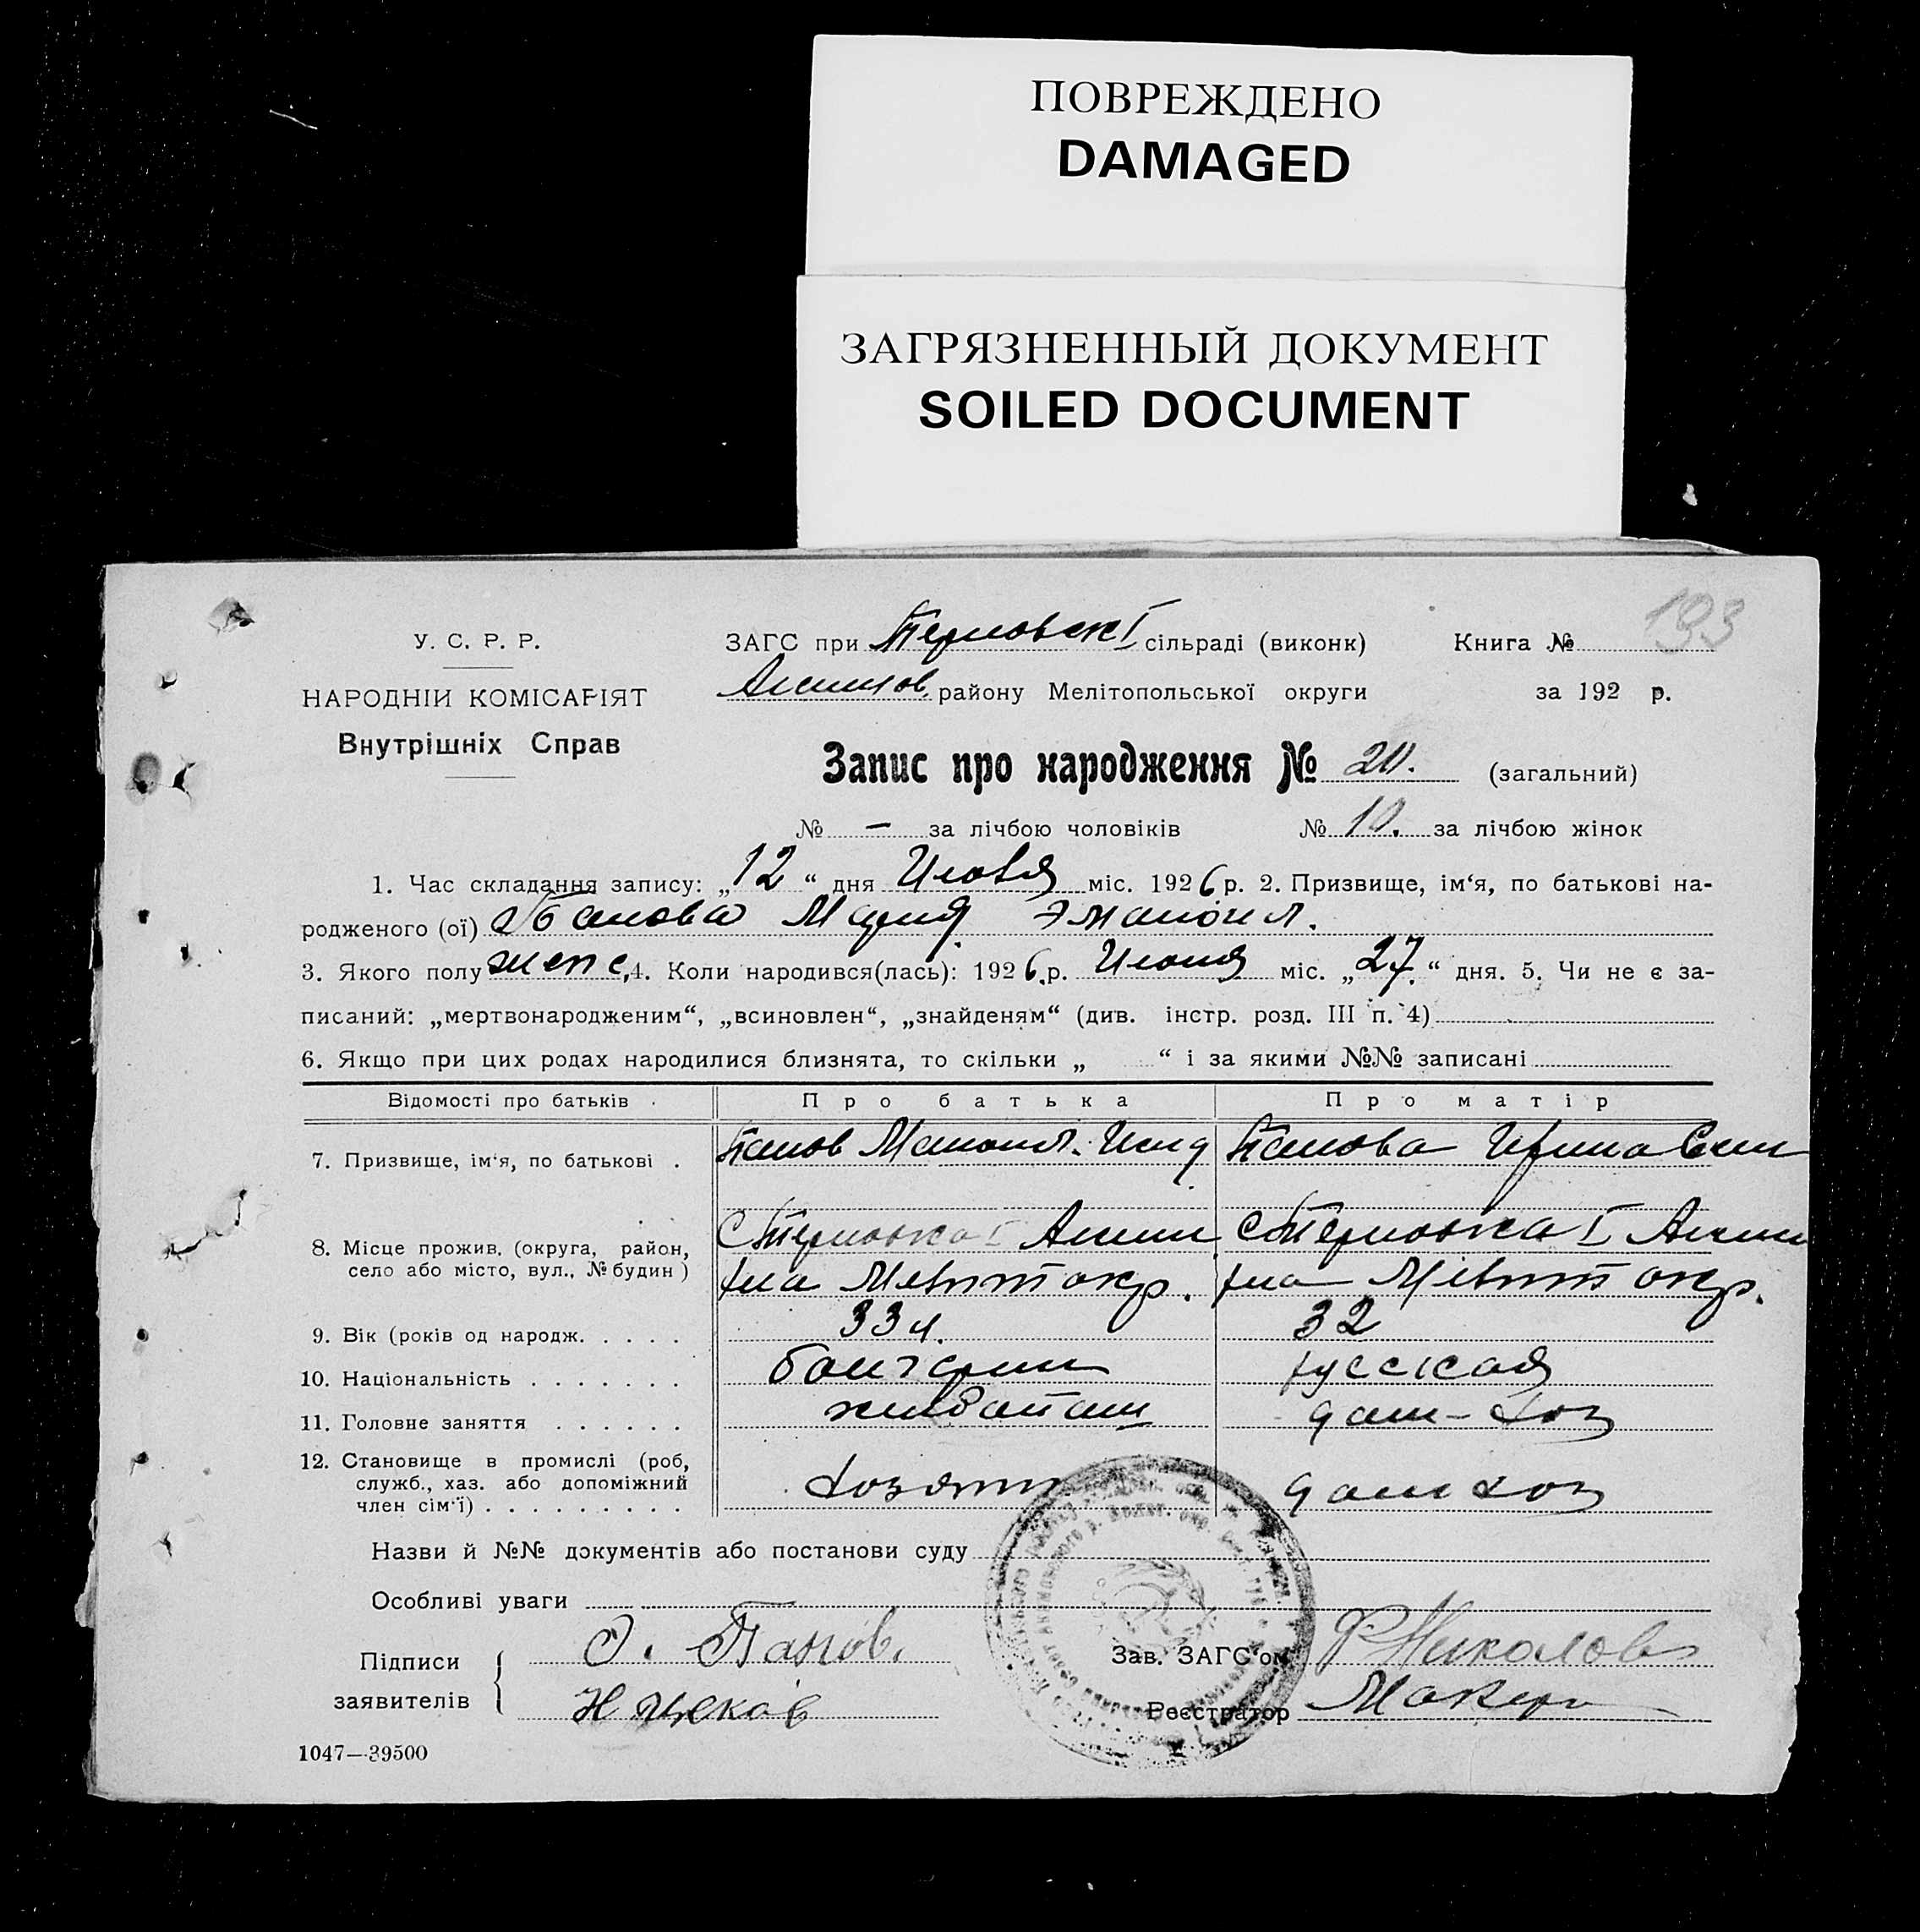 ПОВРЕЖДЕНО
DAMAGED
ЗАГРЯЗНЕННЫЙ ДОКУМЕНТ
SOILED DOCUMENT
193
У. С. Р. Р.
НАРОДНІЙ КОМІСАРІЯТ
Внутрішніх Справ
ЗАГС при Терновск I сільраді (виконк) Книга №
Акимов. району Мелітопольської округи за 192 р.
Запис про народження № 20. (загальний)
№ — за лічбою чоловіків № 10. за лічбою жінок
1. Час складання запису: „12“ дня Июля міс. 1926 р. 2. Призвище, ім‘я, по батькові на-
родженого (ої) Панова Мария Эмануил.
3. Якого полу женс, 4. Коли народився(лась): 1926 р. Июня міс. „27.“ дня. 5. Чи не є за-
писаний: „мертвонародженим“, „всиновлен“, „знайденям“ (див. інстр. розд. III п. 4)
6. Якщо при цих родах народилися близнята, то скільки „ “ і за якими №№ записані
Відомості про батьків Про батька Про матір
7. Призвище, ім‘я, по батькові . Панов Мануил. Панова Ирина
8. Місце прожив. (округа, район, село або місто, вул., № будин) С Терновка I Аким С Терновка I Аким
рна Меліт окр. рна Меліт окр.
9. Вік (років од народж. . . . . 33 л. 32
10. Національність . . . . . . . болгарин русская
11. Головне заняття . . . . . . хлібопаш дом-хоз
12. Становище в промислі (роб, служб., хаз. або допоміжний член сім‘ї) . . . . . . . . . хозяин дом хоз
Назви й №№ документів або постанови суду
Особливі уваги
Підписи заявителів { Э. Панов. Зав. ЗАГС‘ом Николов
Реєстратор
1047—39500